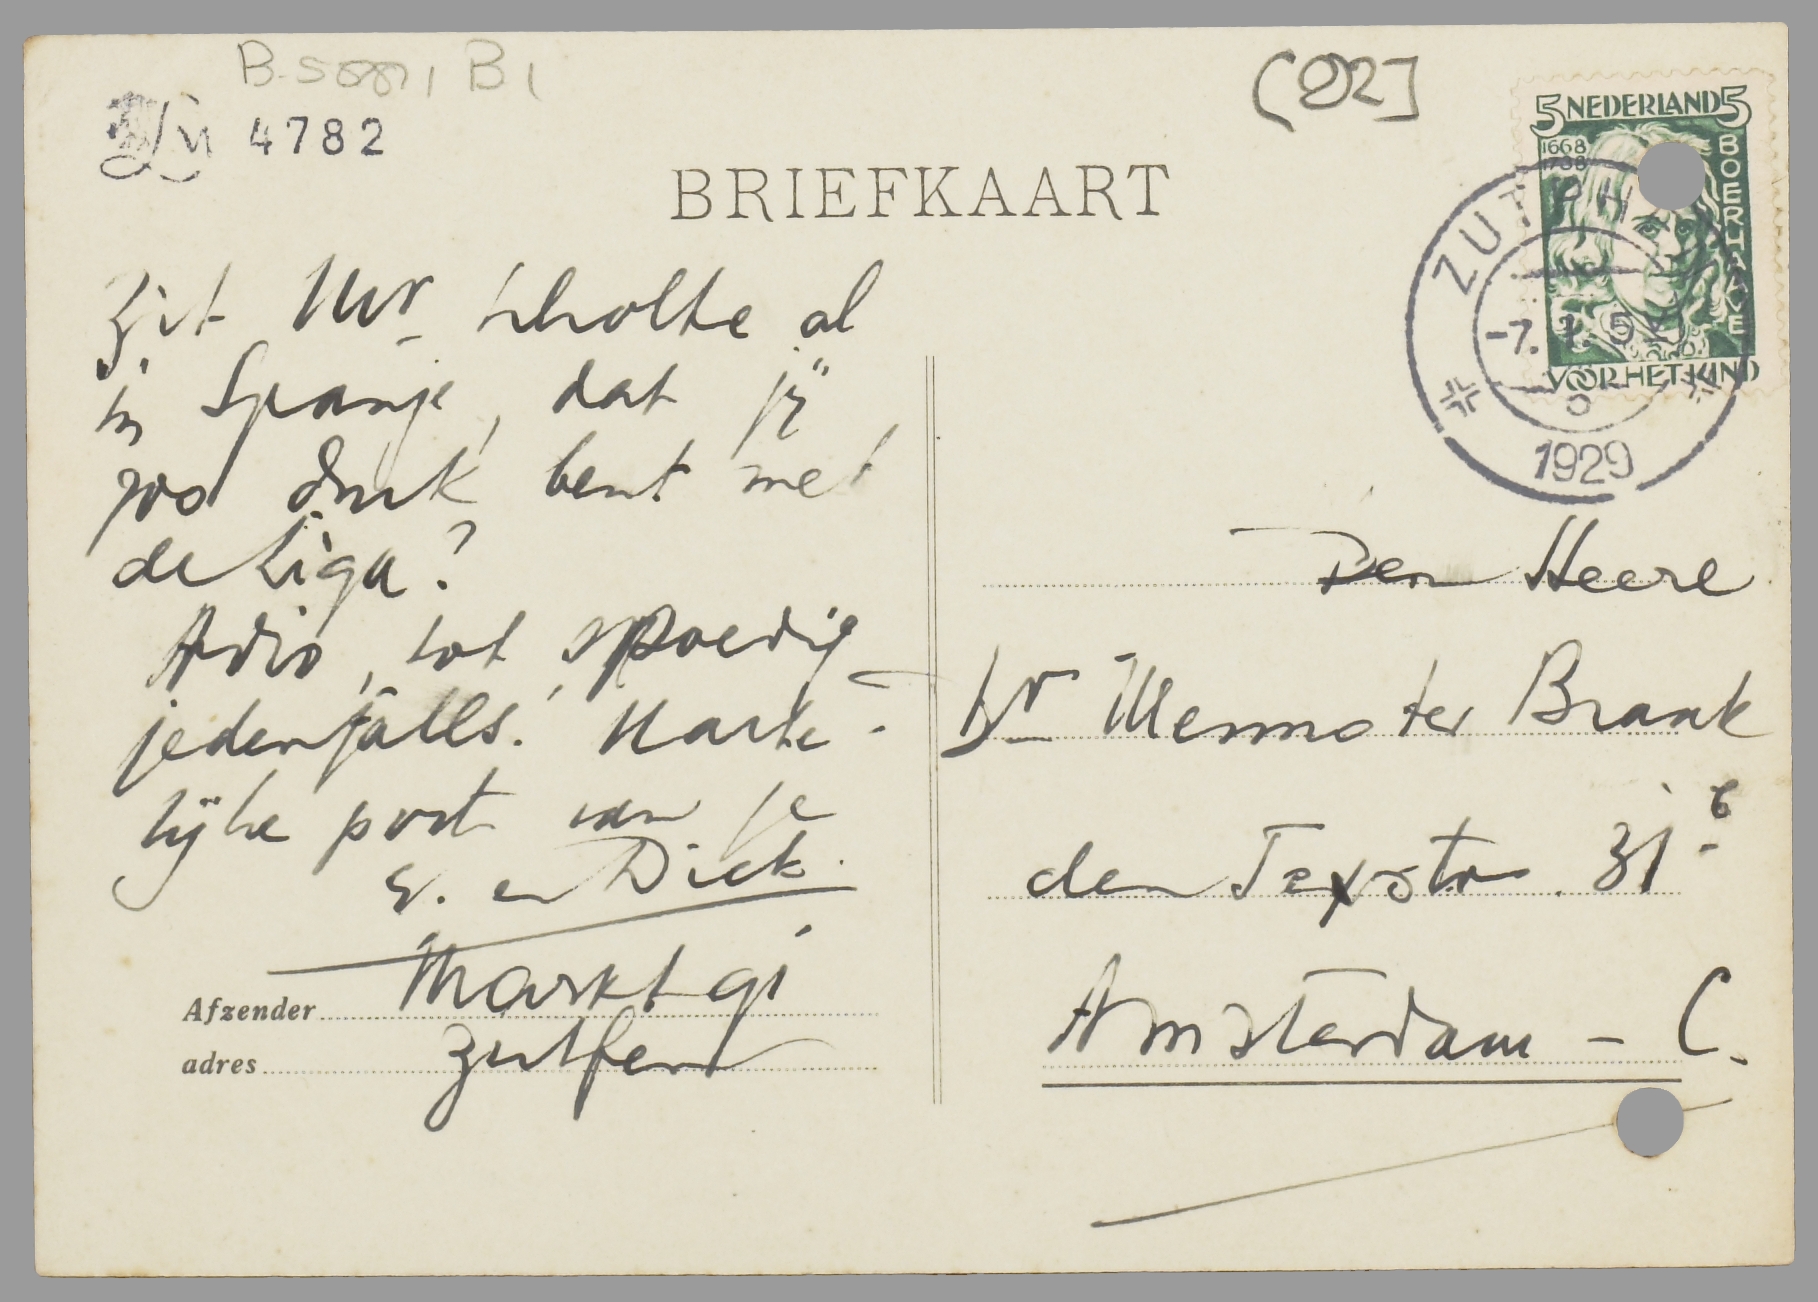 B. 5001, B1
4782
[02]
BRIEFKAART
5 NEDERLAND 5
1668
1738
BOERHAAVE
VOOR HET KIND
ZUTPH
-7. 1. 5
1929
Zit Mr. Scholte al
in Spanje, dat jij
zoo druk bent met
de Liga?
Adio, tot spoedig
jedenfalls! Harte-
lijke post van je
E. en Dick.
Afzender Markt 91
adres Zutfen
Den Heere
Dr Menno ter Braak
den Texstr. 31 b
Amsterdam - C.